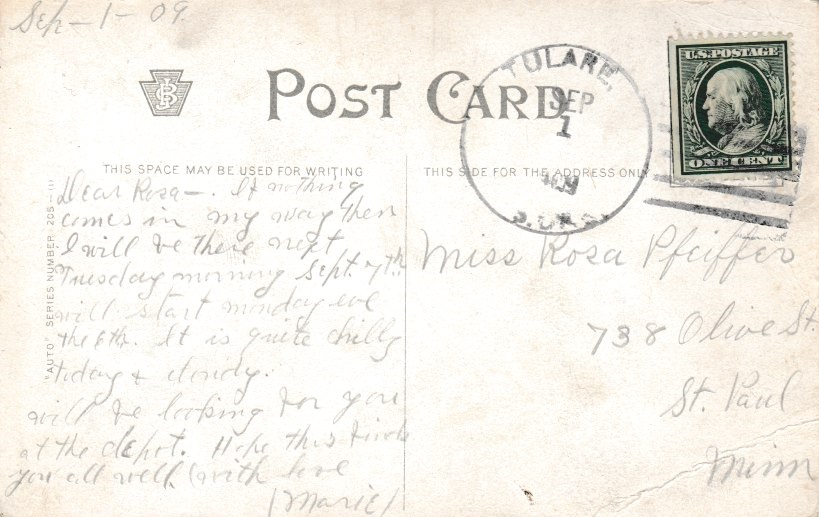 Sep - 1 - 09.
POST CARD
TULARE,
SEP
1
1909
S. DAK.
U.S. POSTAGE
ONE CENT
THIS SPACE MAY BE USED FOR WRITING
THIS SIDE FOR THE ADDRESS ONLY
"AUTO" SERIES NUMBER 205-III
Dear Rosa -. If nothing
comes in my way then
I will be there next
Tuesday morning Sept. 7th.
will start monday eve
the 6th. It is quite chilly
today & cloudy.
will be looking for you
at the depot. Hope this finds
you all well. with love
(Marie)
Miss Rosa Pfeiffer
738 Olive St.
St. Paul
Minn